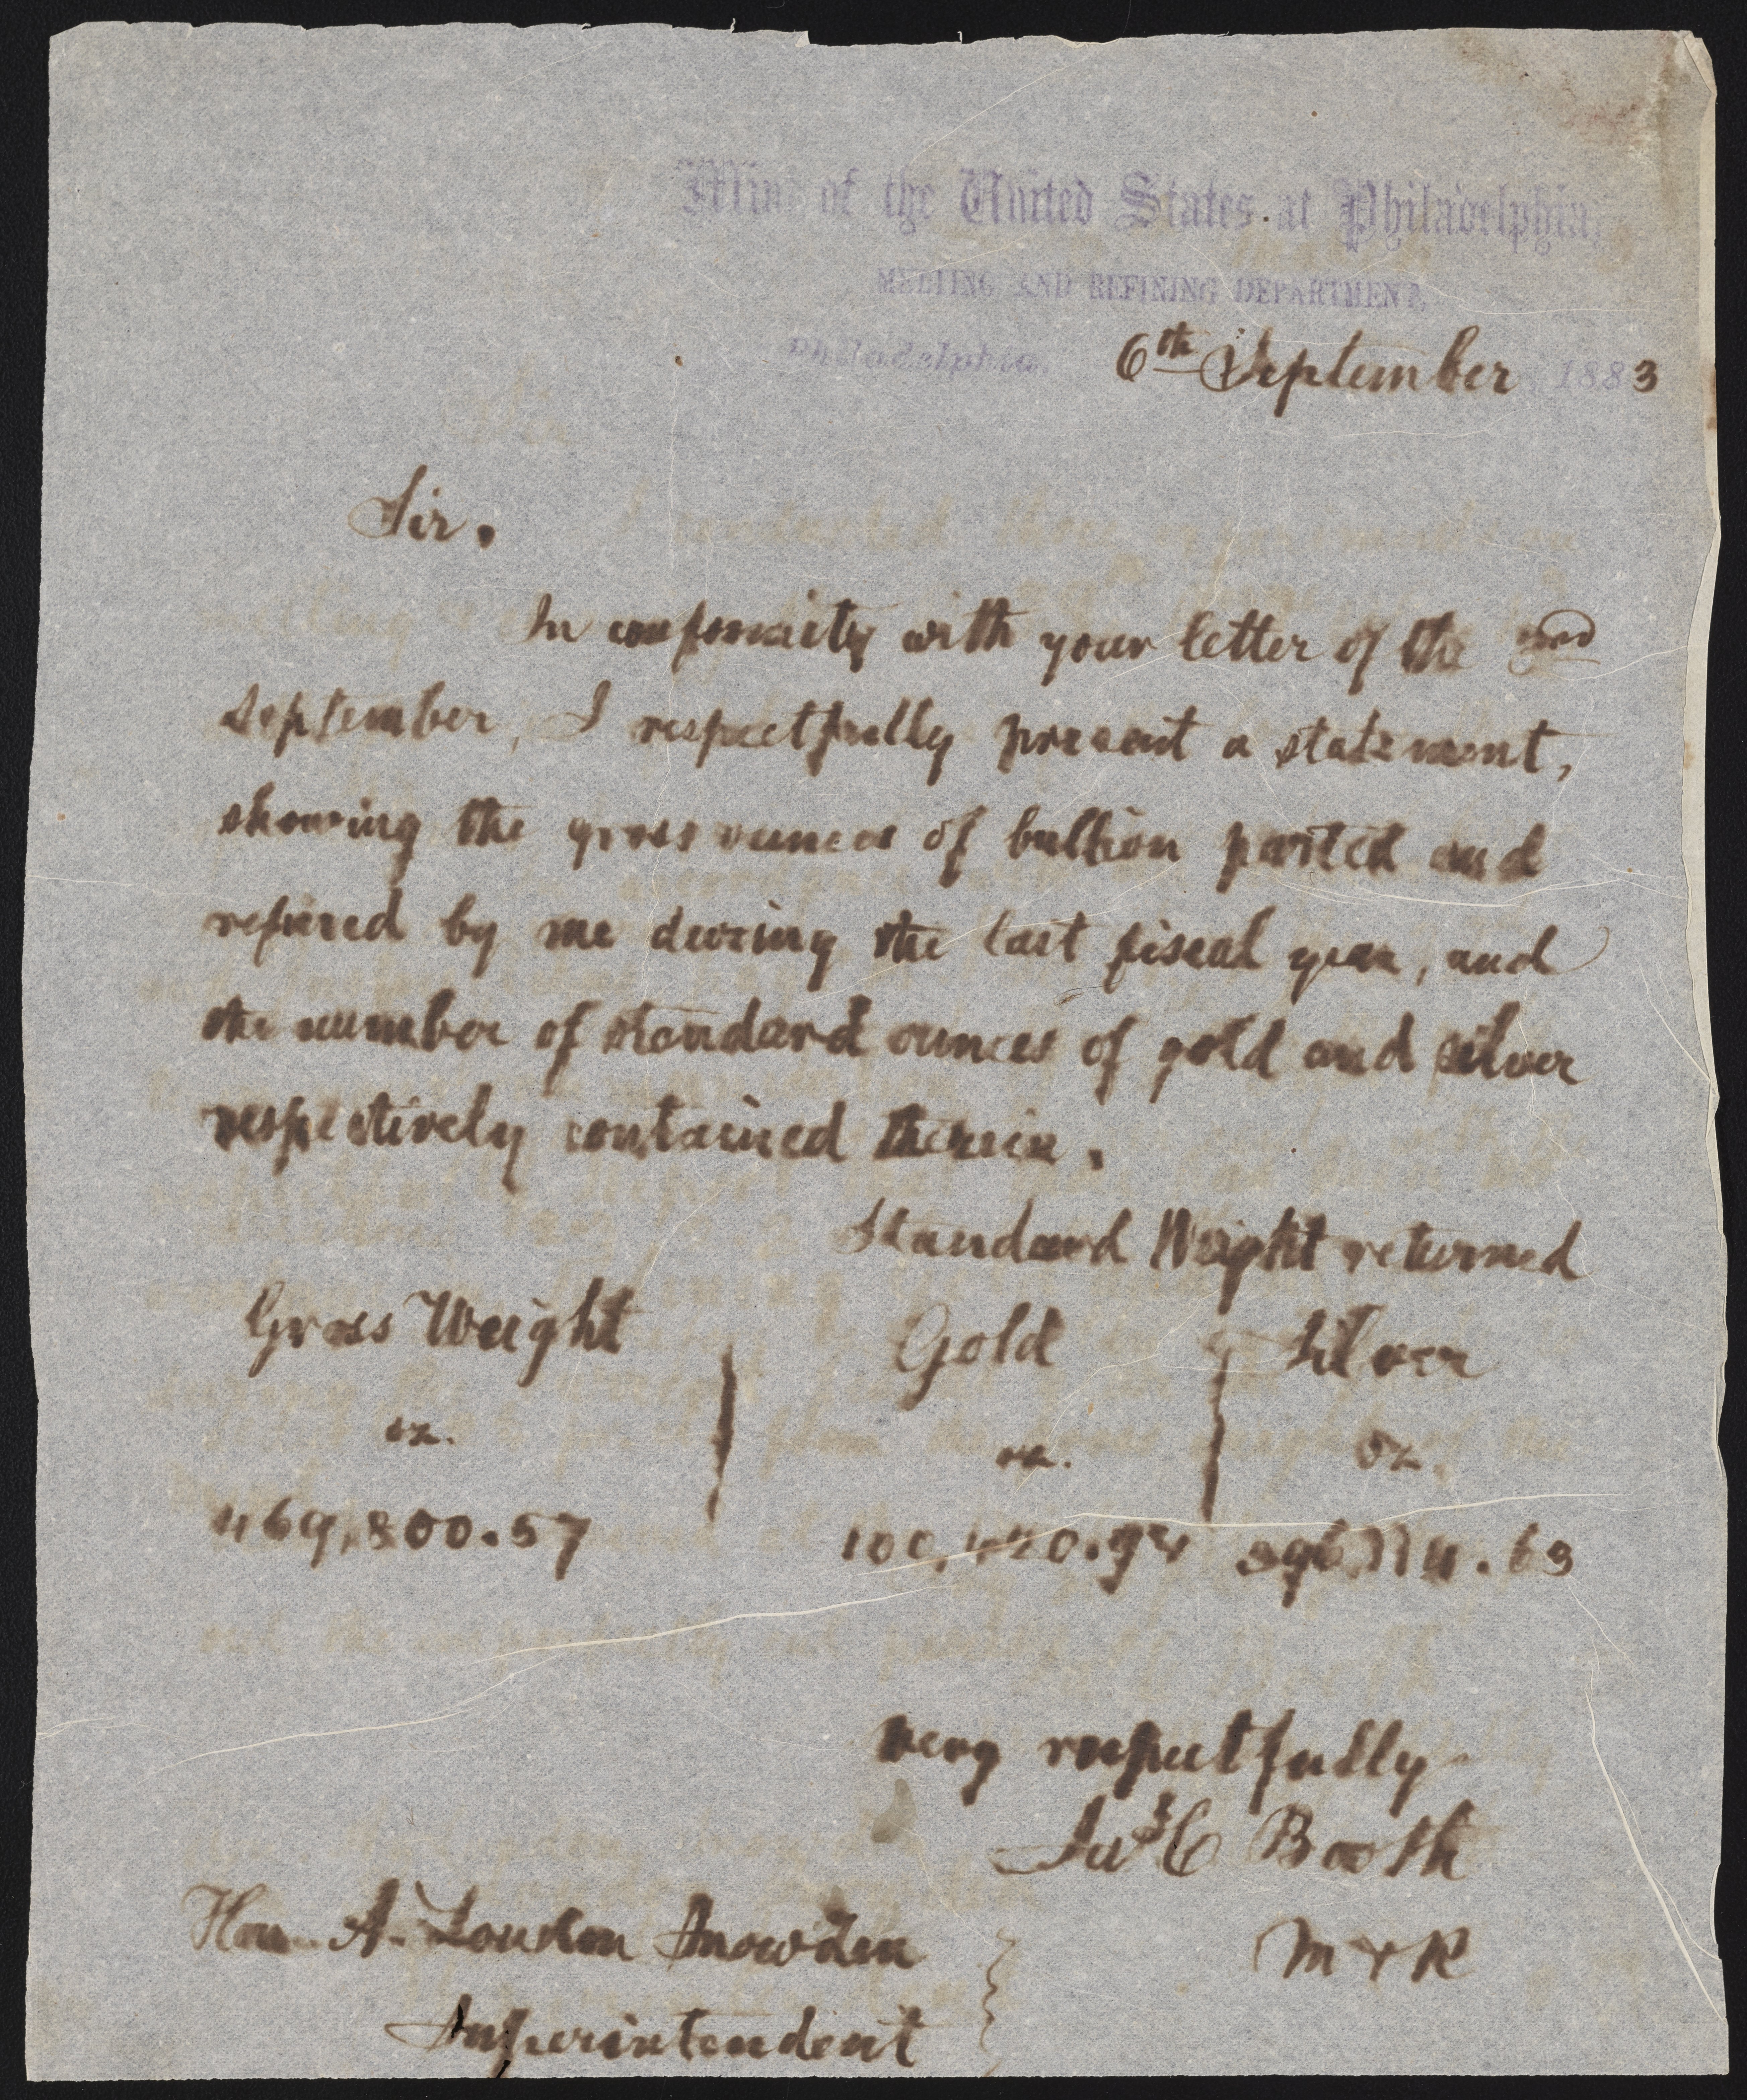 Mint of the United States at Philadelphia,
MELTING AND REFINING DEPARTMENT,
Philadelphia, 6th September 1883
Sir.
In conformity with your letter of the
September, I respectfully present a statement,
showing the gross ounces of bullion parted and
refined by me during the last fiscal year, and
the number of standard ounces of gold and silver
respectively contained therein.
Standard Weight returned
Gross Weight Gold Silver
oz. oz. oz.
469,800.57
very respectfully
Jas C Booth
Hon. A. Loudon Snowden M & R
Superintendent